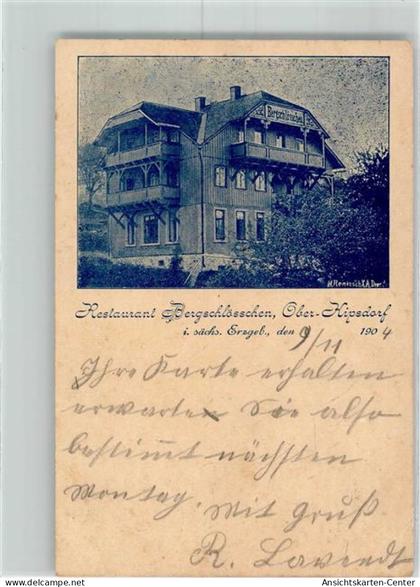 Bergschlösschen
Restaurant Bergschlösschen, Ober-Kipsdorf
i. sächs. Erzgeb., den 9/11 1904
Ihre Karte erhalten
erwarten Sie also
bestimmt nächsten
Montag. Mit Gruß
R.
www.delcampe.net
Ansichtskarten-Center